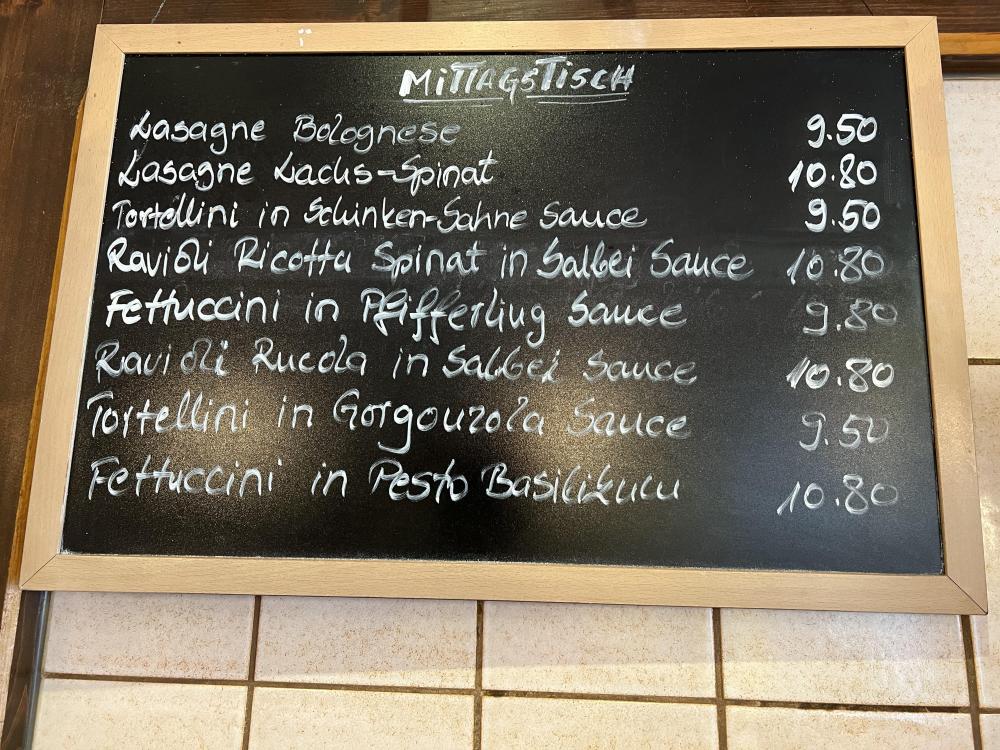 MiTTAGSTiSCH
Lasagne Bolognese 9.50
Lasagne Lachs-Spinat 10.80
Tortellini in Schinken-Sahne Sauce 9.50
Ravioli Ricotta Spinat in Salbei Sauce 10.80
Fettuccini in Pfifferling Sauce 9.80
Ravioli Rucola in Salbei Sauce 10.80
Tortellini in Gorgonzola Sauce 9.50
Fettuccini in Pesto Basilikum 10.80